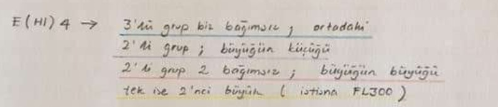 E(HI)4 → 3'lü grup biz bağımsız ; ortadaki
2'li grup ; büyüğün küçüğü
2'li grup 2 bağımsız ; büyüğün büyüğü
tek ise 2'nci büyük ( istisna FL300 )